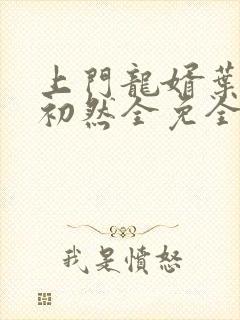 上門龍婿葉
初然全免全
我是憤怒